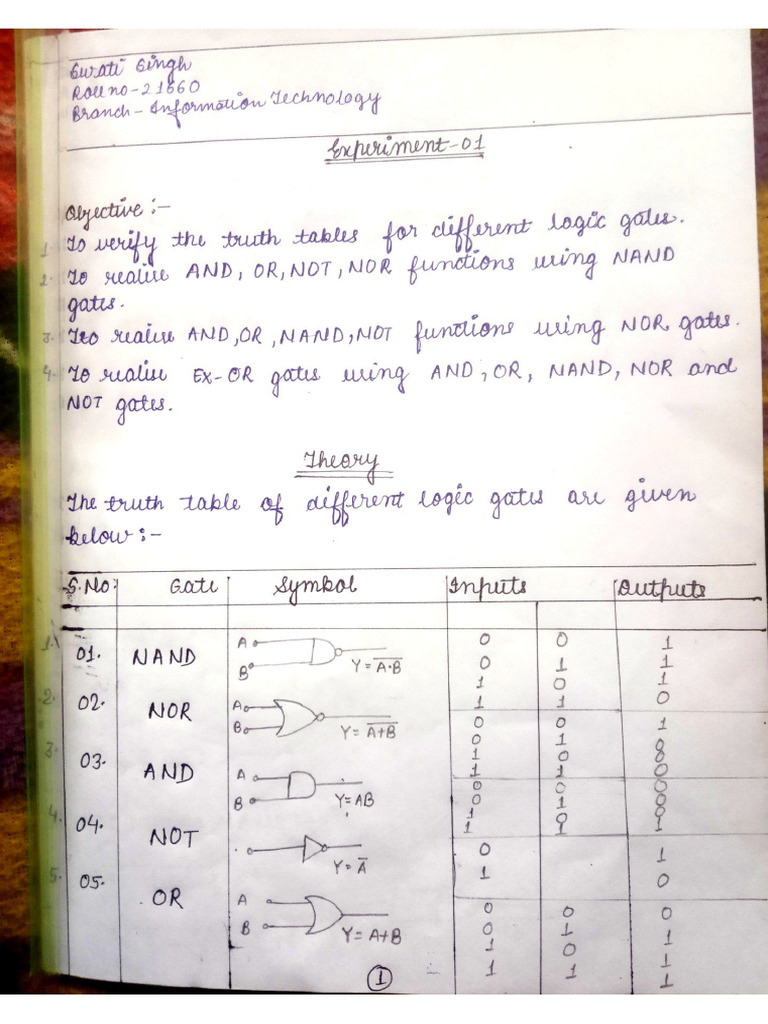 Swati Singh
Roll no-21660
Branch- Information Technology
Experiment-01
Objective :-
1. To verify the truth tables for different logic gates.
2. To realise AND, OR, NOT, NOR functions using NAND
gates.
3. To realise AND, OR, NAND, NOT functions using NOR gates.
4. To realise EX-OR gates using AND, OR, NAND, NOR and
NOT gates.
Theory
The truth table of different logic gates are given
below :-
S.No: Gate Symbol Inputs Outputs
01. NAND A B Y = \overline{A·B}
0 0 1
0 1 1
1 0 1
1 1 0
02. NOR A B Y = \overline{A+B}
0 0 1
0 1 0
1 0 0
1 1 0
03. AND A B Y = AB
0 0 0
0 1 0
1 0 0
1 1 1
04. NOT Y = \overline{A}
0 1
1 0
05. OR A B Y = A+B
0 0 0
0 1 1
1 0 1
1 1 1
1